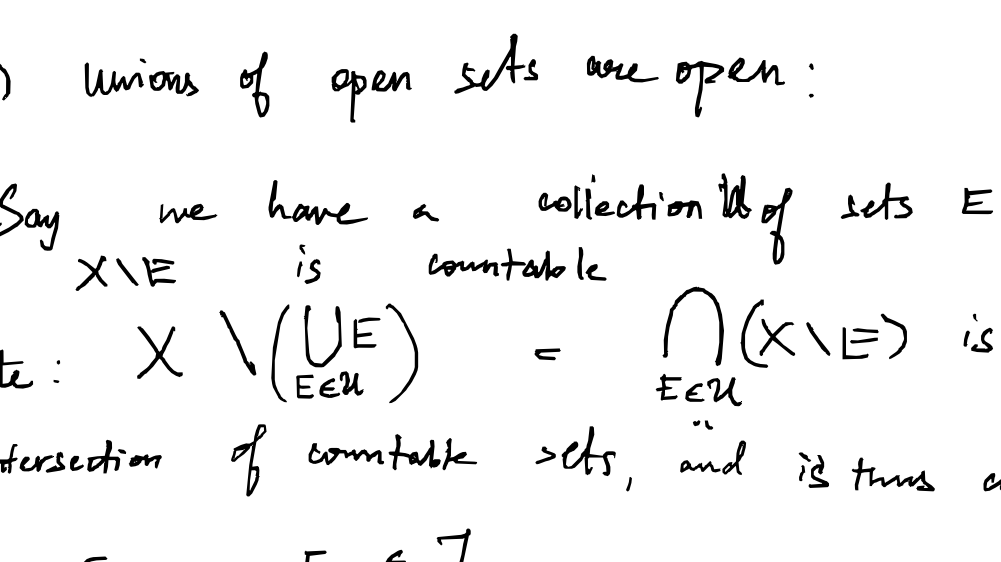 ) Unions of open sets are open :
Say we have a collection 𝒰 of sets E
X\E is countable
te : X \ (⋃_{E∈𝒰} E) = ⋂_{E∈𝒰} (X\E) is
ntersection of countable sets, and is thus